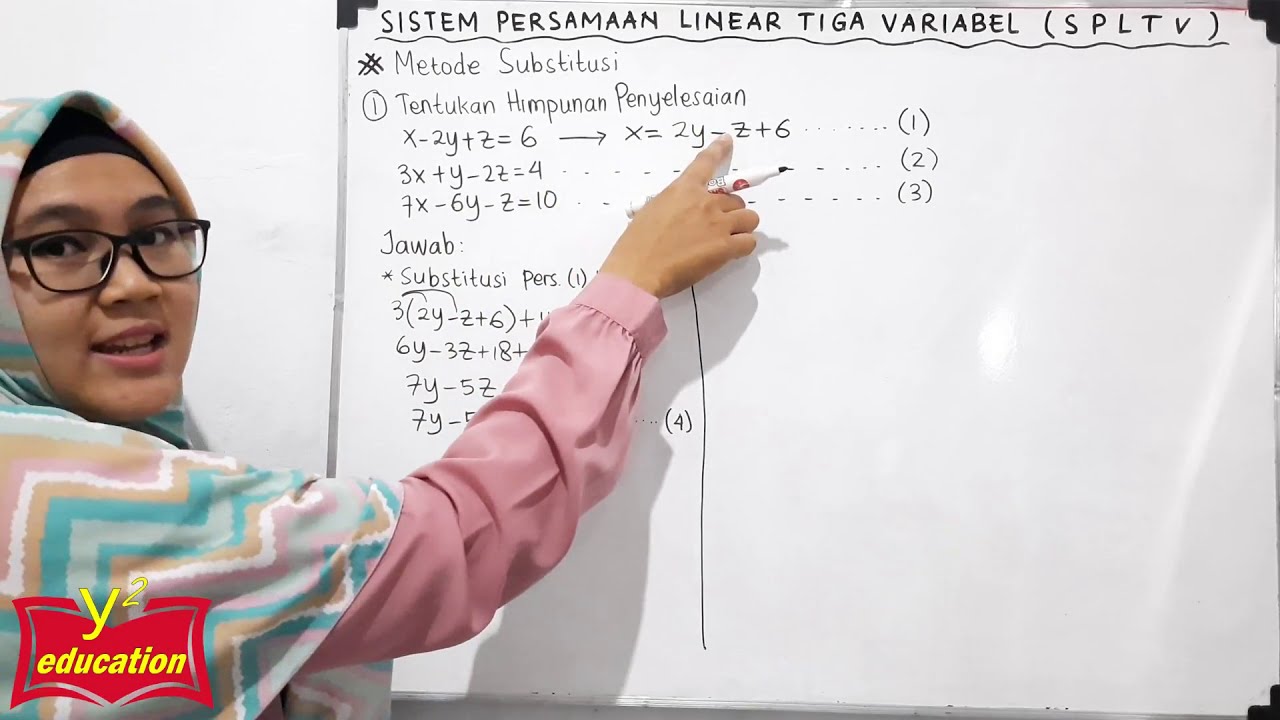 SISTEM PERSAMAAN LINEAR TIGA VARIABEL (SPLTV)
* Metode Substitusi
① Tentukan Himpunan Penyelesaian
x-2y+z=6 → x=2y-z+6 ........ (1)
3x+y-2z=4 ........ (2)
7x-6y-z=10 ........ (3)
Jawab:
* Substitusi Pers. (1)
3(2y-z+6)+
6y-3z+18+
7y-5z
7y-5 .... (4)
y²
education